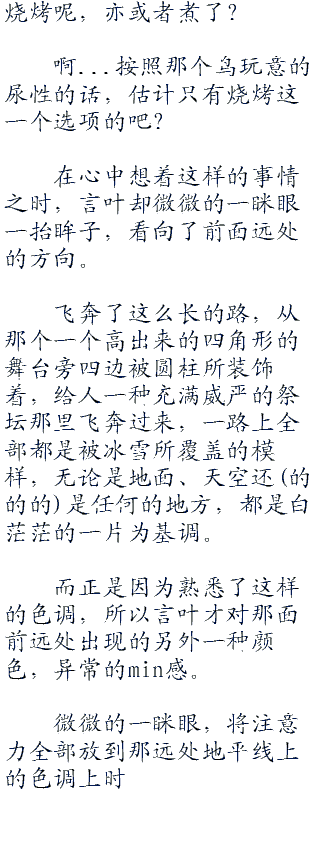 烧烤呢，亦或者煮了？
啊...按照那个鸟玩意的
尿性的话，估计只有烧烤这
一个选项的吧？
在心中想着这样的事情
之时，言叶却微微的一眯眼
一抬眸子，看向了前面远处
的方向。
飞奔了这么长的路，从
那个一个高出来的四角形的
舞台旁四边被圆柱所装饰
着，给人一种充满威严的祭
坛那里飞奔过来，一路上全
部都是被冰雪所覆盖的模
样，无论是地面、天空还(的
的的)是任何的地方，都是白
茫茫的一片为基调。
而正是因为熟悉了这样
的色调，所以言叶才对那面
前远处出现的另外一种颜
色，异常的min感。
微微的一眯眼，将注意
力全部放到那远处地平线上
的色调上时